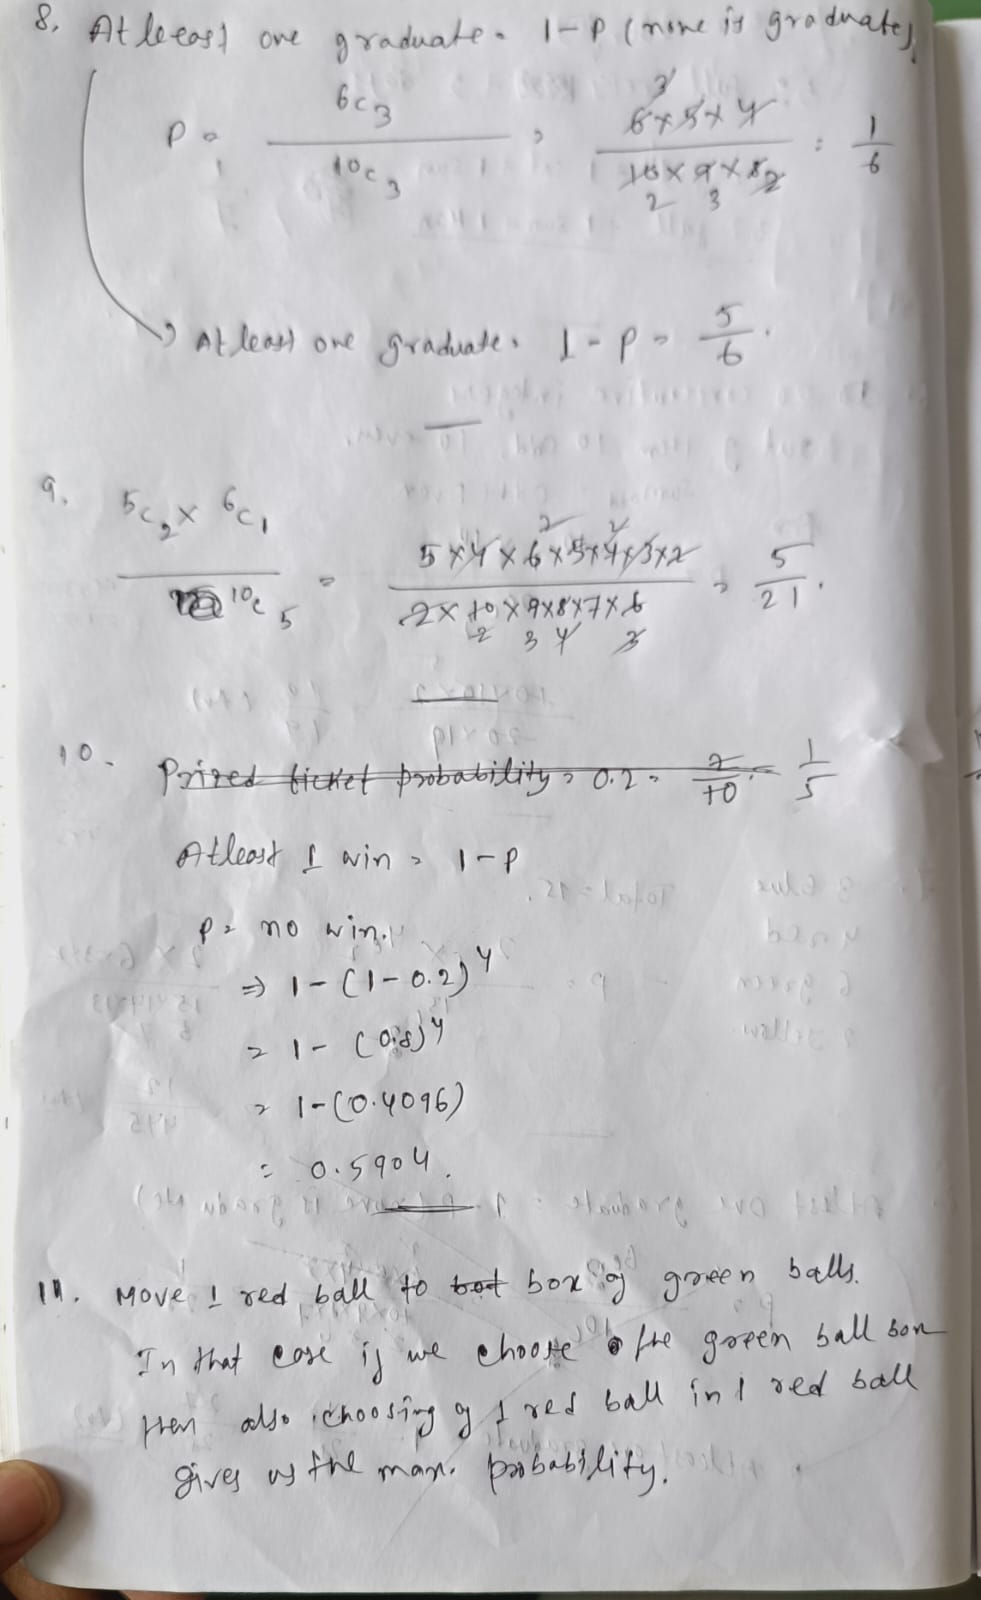 8. Atleast one graduate = 1-P (none is graduate)
P = 6c3 / 10c3 = 6×5×4 / 10×9×8 = 1/6
3
2 3 2
Atleast one graduate = 1-P = 5/6.
9. 5c2 × 6c1 / 10c5 = 5×4×6×5×4×3×2 / 2×10×9×8×7×6 = 5/21.
2 2
2 3 4 3
10. Prized ticket probability = 0.2 = 2/10 = 1/5
Atleast 1 win = 1-P
P = no win.
⇒ 1-(1-0.2)^4
= 1-(0.8)^4
= 1-(0.4096)
= 0.5904.
11. Move 1 red ball to bot box of green balls.
In that case if we choose the green ball box
then also choosing of 1 red ball in 1 red ball
gives us the max. probability.